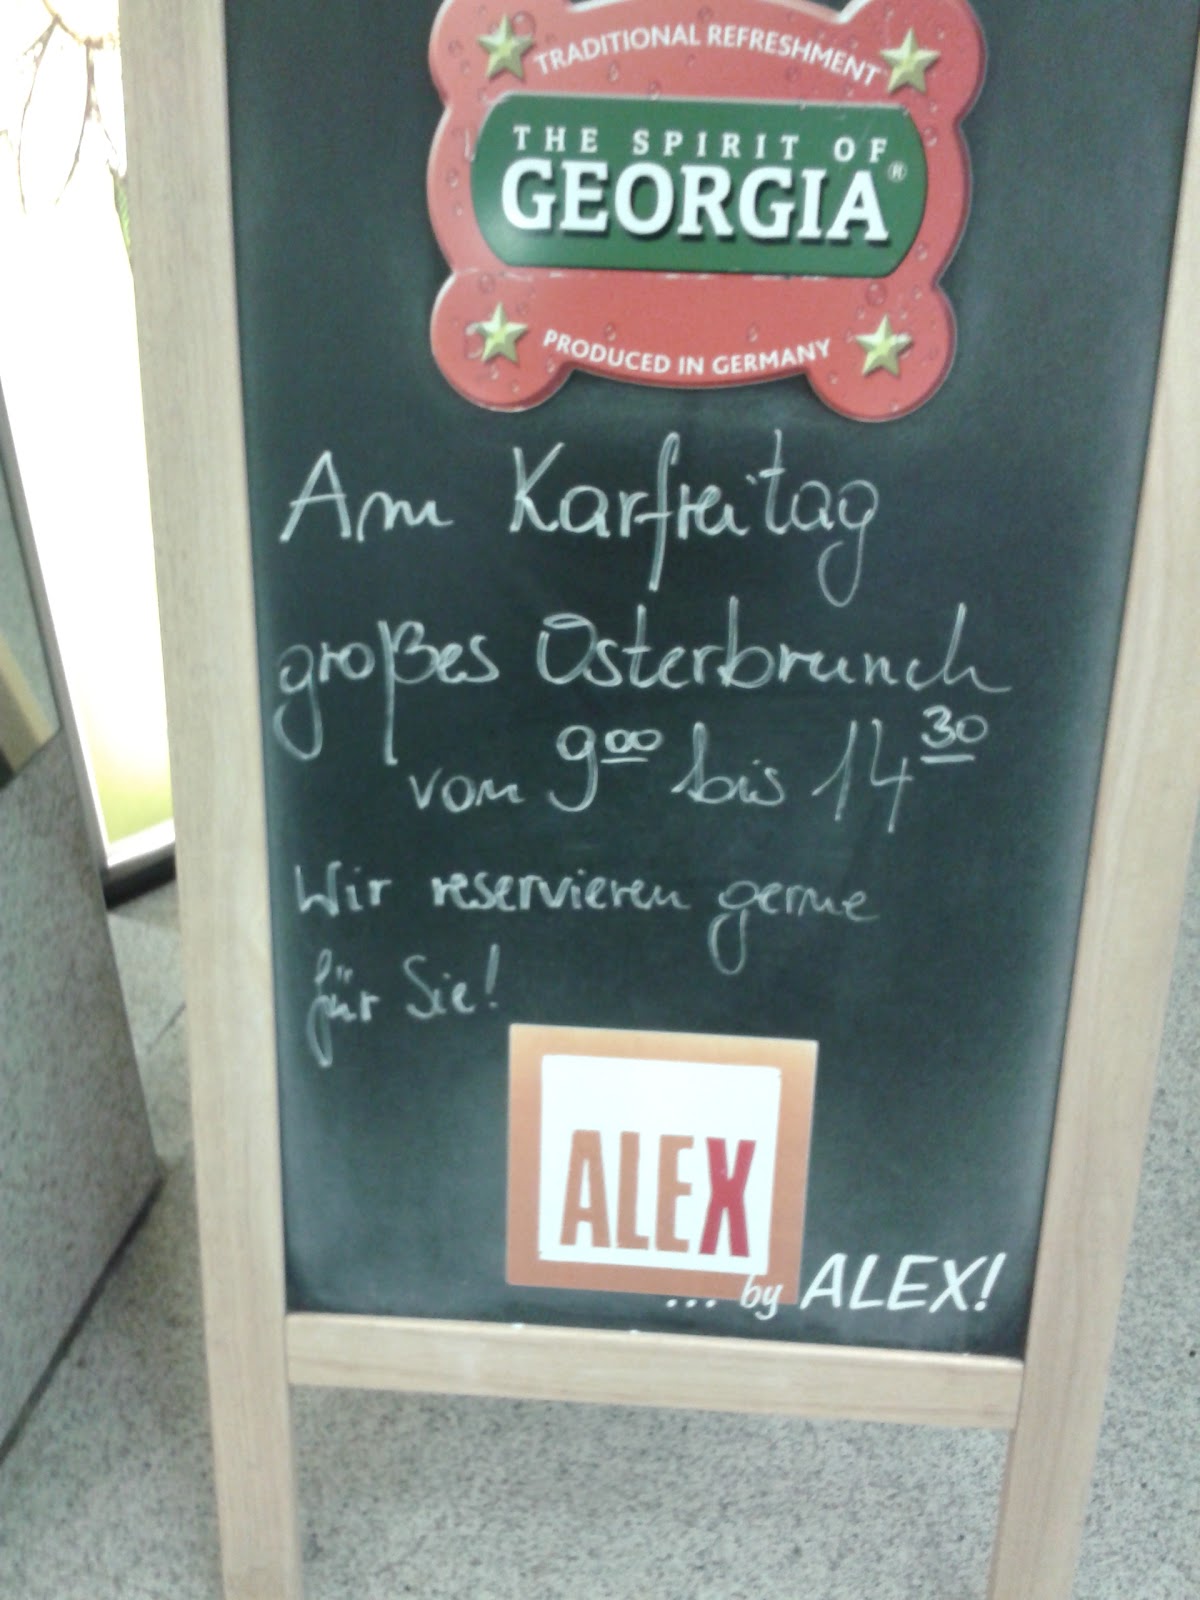 TRADITIONAL REFRESHMENT
THE SPIRIT OF
GEORGIA®
PRODUCED IN GERMANY
Am Karfreitag
großes Osterbrunch
von 9⁰⁰ bis 14³⁰
Wir reservieren gerne
für Sie!
ALEX
... by ALEX!